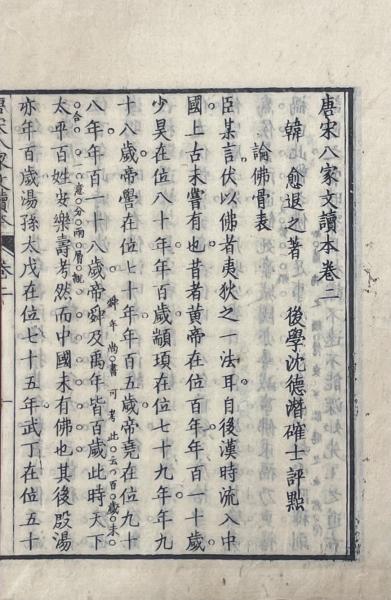 唐宋八家文讀本卷二
韓愈退之著 後學沈德潛確士評點
論佛骨表
臣某言伏以佛者夷狄之一法耳自後漢時流入中
國上古未嘗有也昔者黃帝在位百年年百一十歲
少昊在位八十年年百歲顓頊在位七十九年年九
十八歲帝嚳在位七十年年百五歲帝堯在位九十
八年年百一十八歲帝舜及禹年皆百歲此時天下
太平百姓安樂壽考然而中國未有佛也其後殷湯
亦年百歲湯孫太戊在位七十五年武丁在位五十